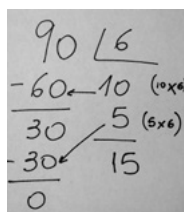 90 6
-60 10 (10x6)
30 5 (5x6)
-30 15
0